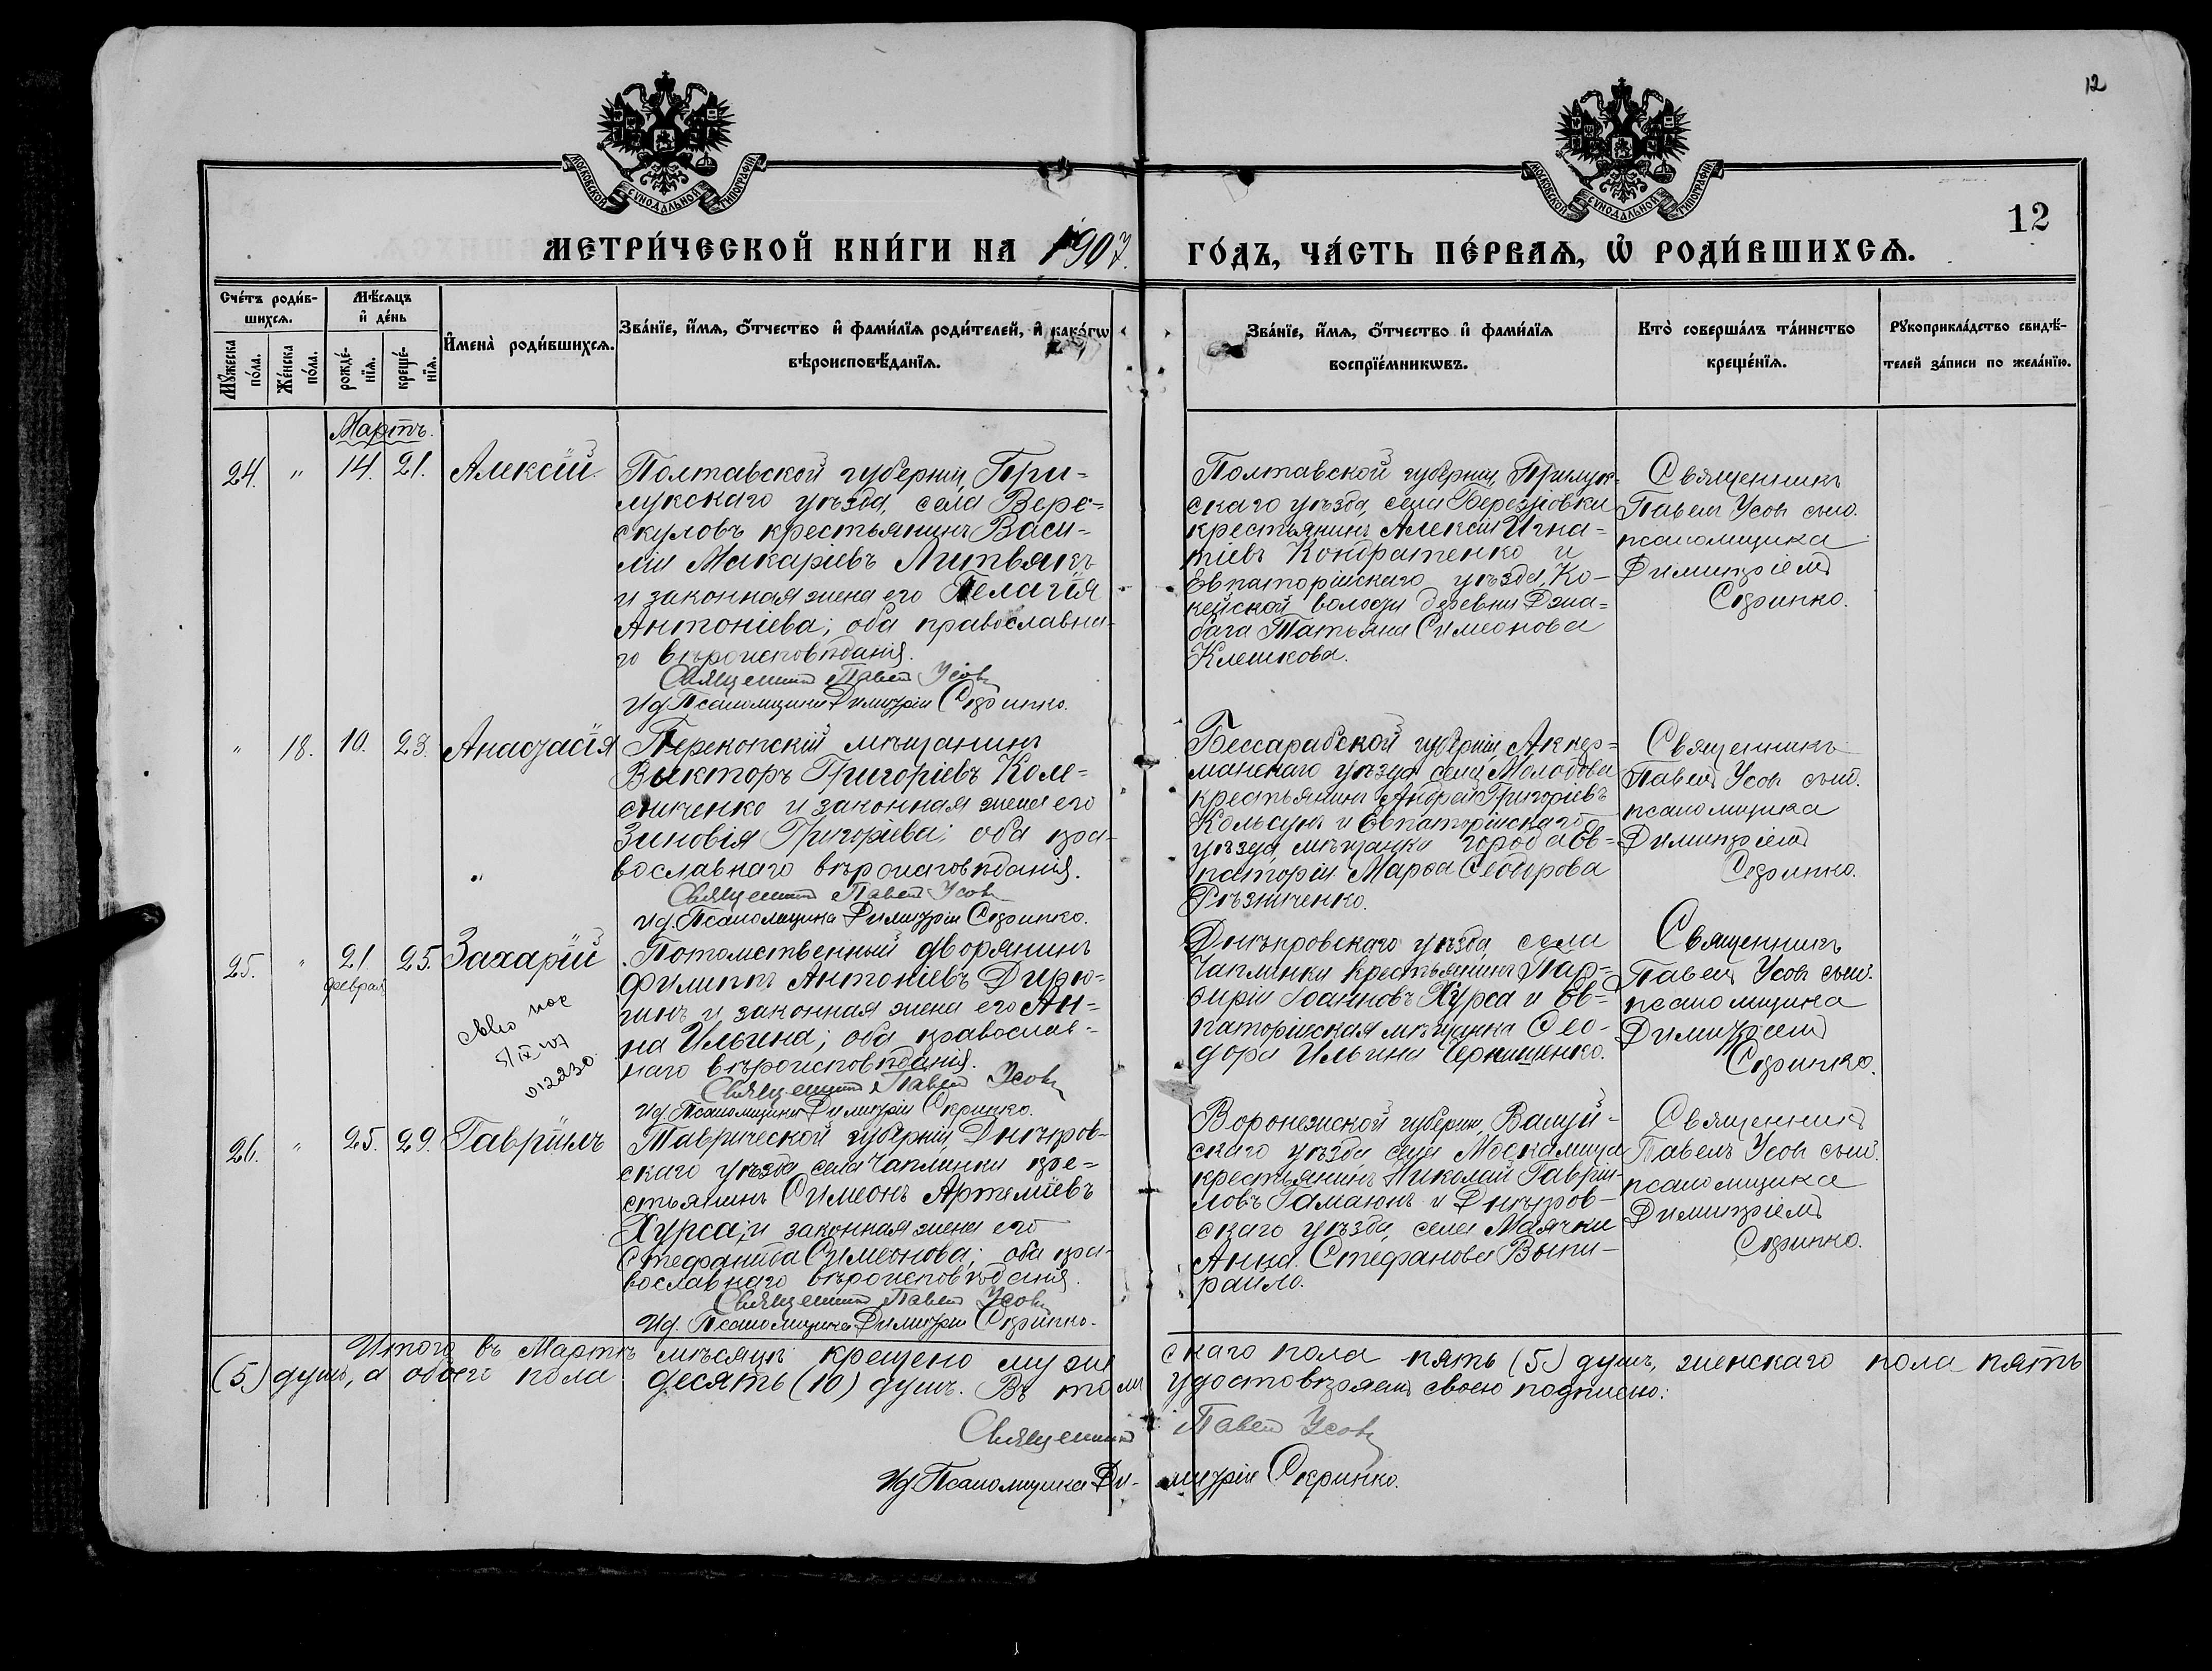 12
МОСКОВСКОЙ СѴНОДАЛЬНОЙ ТИПОГРАФІИ
МОСКОВСКОЙ СѴНОДАЛЬНОЙ ТИПОГРАФІИ
12
МЕТРИ́ЧЕСКОЙ КНИ́ГИ НА 1907.
ГО́ДЪ, ЧА́СТЬ ПЕ́РВАѦ, Ѡ҆ РОДИ́ВШИХСѦ.
Сче́тъ роди́в-
шихсѧ.
Мꙋ́жеска по́ла.
Же́нска по́ла.
Мѣ́сѧцъ
и҆ де́нь
рожде́-
нїѧ.
креще́-
нїѧ.
И҆мена̀ роди́вшихсѧ.
Зва́нїе, и҆́мѧ, о҆́тчество и҆ фами́лїѧ роди́телей, и҆ како́гѡ
вѣроисповѣ́данїѧ.
Зва́нїе, и҆́мѧ, о҆́тчество и҆ фами́лїѧ
воспрїе́мникѡвъ.
Кто̀ соверша́лъ та́инство
креще́нїѧ.
Рꙋкоприкла́дство свидѣ́-
телей за́писи по жела́нїю.
Мартъ.
24. " 14. 21. Алексій
Полтавской губерніи, При-
лукскаго уѣзда, села Вере-
скуловъ крестьянинъ Васи-
лій Макаріевъ Литвякъ
и законная жена его Пелагія
Антоніева; оба православна-
го вѣроисповѣданія.
Священникъ Павелъ Усовъ
Ид. Псаломщика Димитрій Скрипко.
Полтавской губерніи, Прилук-
скаго уѣзда, села Березовки
крестьянинъ Алексій Игна-
тіевъ Кондратенко и
Евпаторійскаго уѣзда, Ко-
кейской волости деревни Джа-
бага Татьяна Симеонова
Клешкова.
Священникъ
Павелъ Усовъ съ и.д.
псаломщика
Димитріемъ
Скрипко.
" 18. 10. 23. Анастасія
Перекопскій мѣщанинъ
Викторъ Григоріевъ Коле-
сниченко и законная жена его
Зиновія Григоріева; оба пра-
вославнаго вѣроисповѣданія.
Священникъ Павелъ Усовъ
Ид. Псаломщика Димитрій Скрипко.
Бессарабской губерніи, Аккер-
манскаго уѣзда, села Молодова
крестьянинъ Андрей Григоріевъ
Кольсунъ и Евпаторійскаго
уѣзда, мѣщанка города Ев-
паторіи Марѳа
Рѣзниченко.
Священникъ
Павелъ Усовъ съ и.д.
псаломщика
Димитріемъ
Скрипко.
25. " 21. 25. Захарій
Февраля
5/IV 907
№ 2230
Потомственный дворянинъ
Филиппъ Антоніевъ
и законная жена его Ан-
на Ильина; оба православ-
наго вѣроисповѣданія.
Священникъ Павелъ Усовъ
Ид. Псаломщика Димитрій Скрипко.
Днѣпровскаго уѣзда, села
Чаплинки крестьянинъ Пар-
ѳирій Іоанновъ Хурса и Ев-
паторійская мѣщанка Ѳео-
дора Ильина Чернишенко.
Священникъ
Павелъ Усовъ съ и.д.
псаломщика
Димитріемъ
Скрипко.
26. " 25. 29. Гавріилъ
Таврической губерніи, Днѣпров-
скаго уѣзда, села Чаплинки кре-
стьянинъ Симеонъ Артеміевъ
Хурса, и законная жена его
Стефанида Симеонова; оба пра-
вославнаго вѣроисповѣданія.
Священникъ Павелъ Усовъ
Ид. Псаломщика Димитрій Скрипко.
Воронежской губерніи, Валуй-
скаго уѣзда, села
крестьянинъ Николай Гавріи-
ловъ Гамаюнъ и Днѣпров-
скаго уѣзда, села Маячки
Анна Стефанова Выпи-
райло.
Священникъ
Павелъ Усовъ съ и.д.
псаломщика
Димитріемъ
Скрипко.
Итого въ Мартѣ мѣсяцѣ крещено муже скаго пола пять (5) душъ, женскаго пола пять
(5) душъ, а обоего пола десять (10) душъ. Въ томъ удостовѣряемъ своею подписью:
Священникъ Павелъ Усовъ
Ид. Псаломщика Ди- митрій Скрипко.